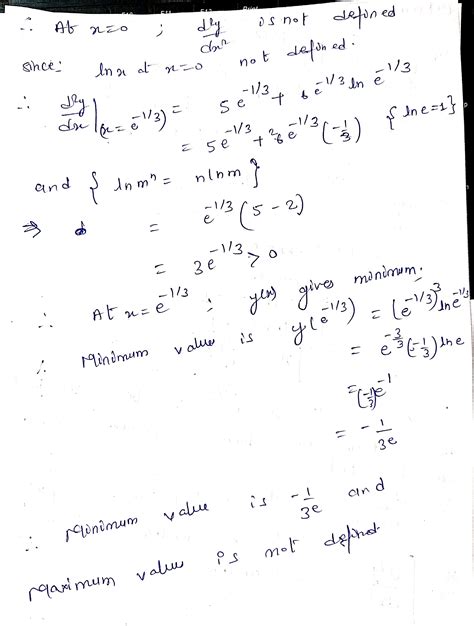 ∴ At x=0 ; d²y/dx² is not defined
since: ln x at x=0 not defined.
∴ d²y/dx |(x = e^-1/3) = 5e^-1/3 + 6e^-1/3 ln e^-1/3
= 5e^-1/3 + 6e^-1/3 (-1/3) {ln e=1}
and { ln mⁿ = n ln m }
⇒ = e^-1/3 (5 - 2)
= 3e^-1/3 > 0
∴ At x = e^-1/3 ; y(x) gives minimum;
∴ Minimum value is y(e^-1/3) = (e^-1/3)^3 ln e^-1/3
= e^-3/3 (-1/3) ln e
= (-1/3) e^-1
= - 1/3e
∴ Minimum value is - 1/3e and
Maximum value is not defined.